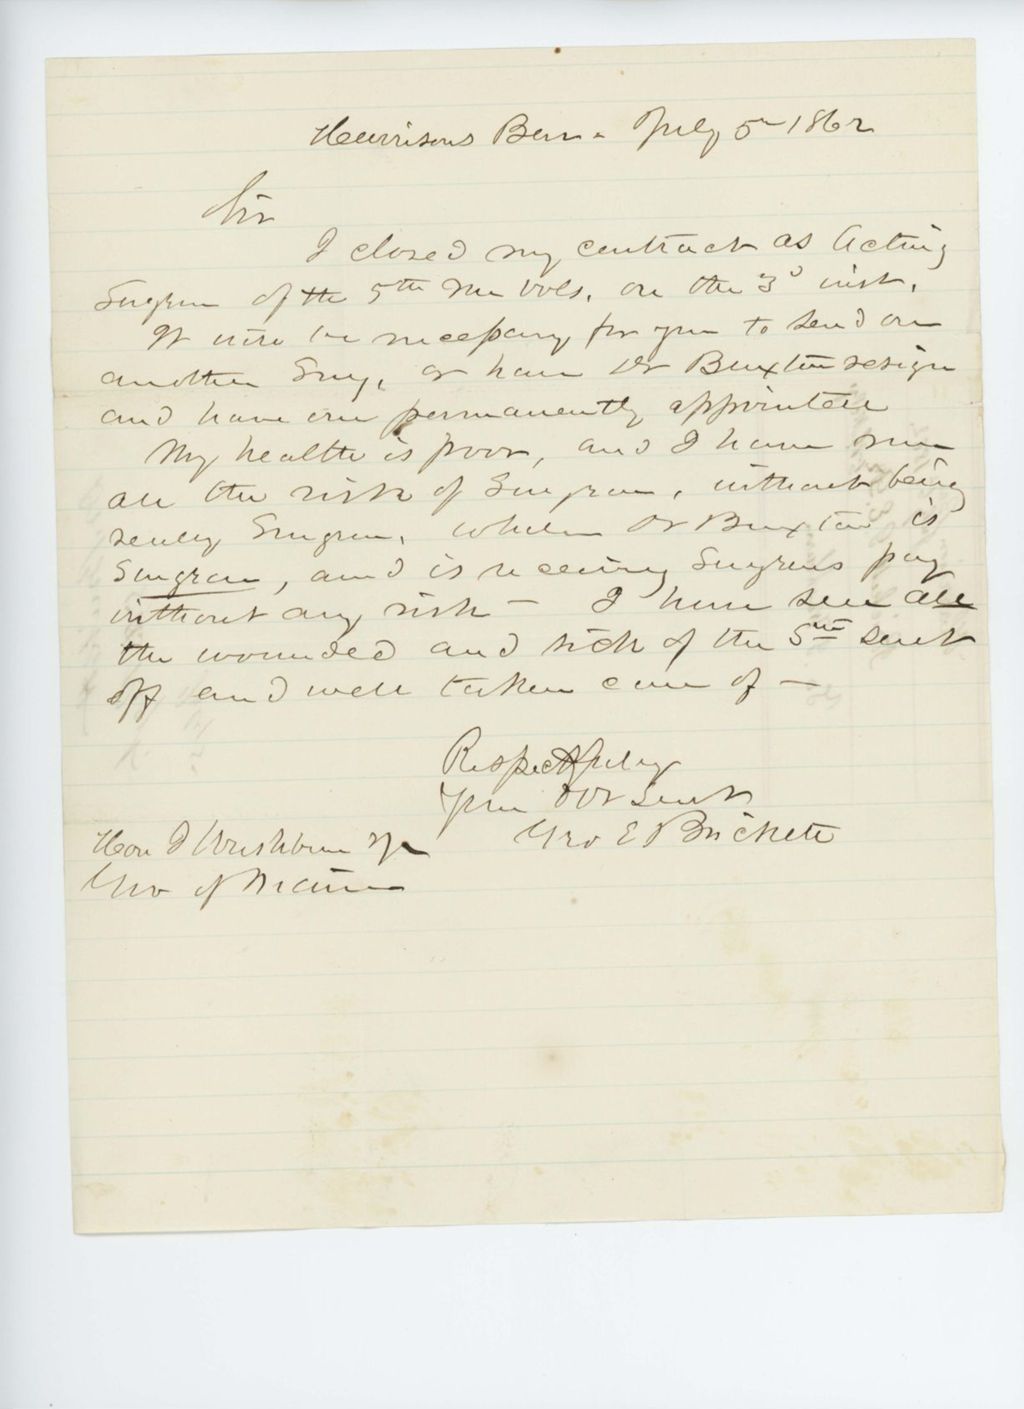 Harrisons Bar Va July 5th 1862
Sir
I closed my contract as Acting
Surgeon of the 5th Me Vols, on the 3d inst,
It will be necessary for you to send on
another Surg, or have Dr Buxton resign
and have one permanently appointed
My health is poor, and I have run
all the risk of Surgeon, without being
really Surgeon, while Dr Buxton is
Surgeon, and is receiving Surgeons pay
without any risk — I have seen all
the wounded and sick of the 5th sent
off and well taken care of —
Respectfully
Your Obt Servt
Geo E Brickett
Hon I Washburn Jr
Gov of Maine